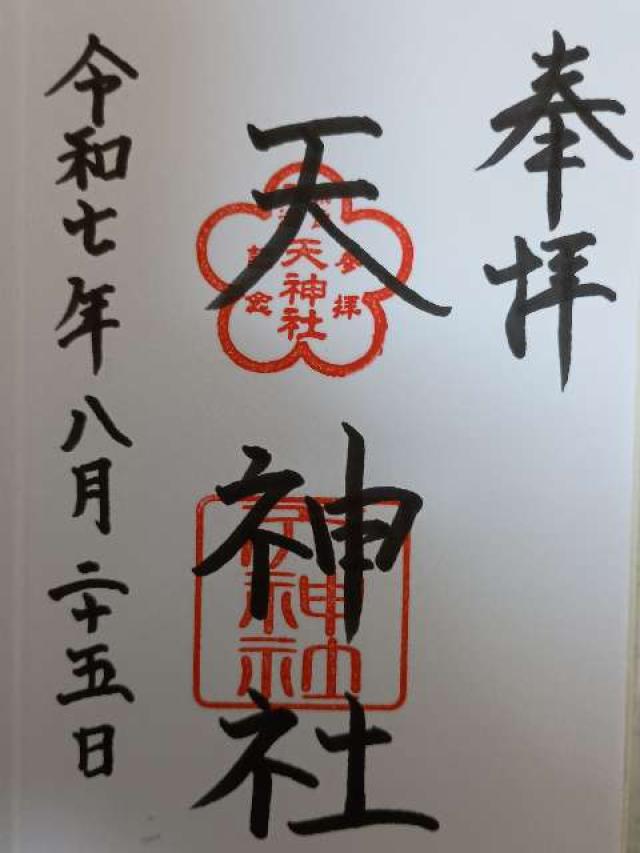 奉拝
天神社
参拝
天神社
記念
令和七年八月二十五日